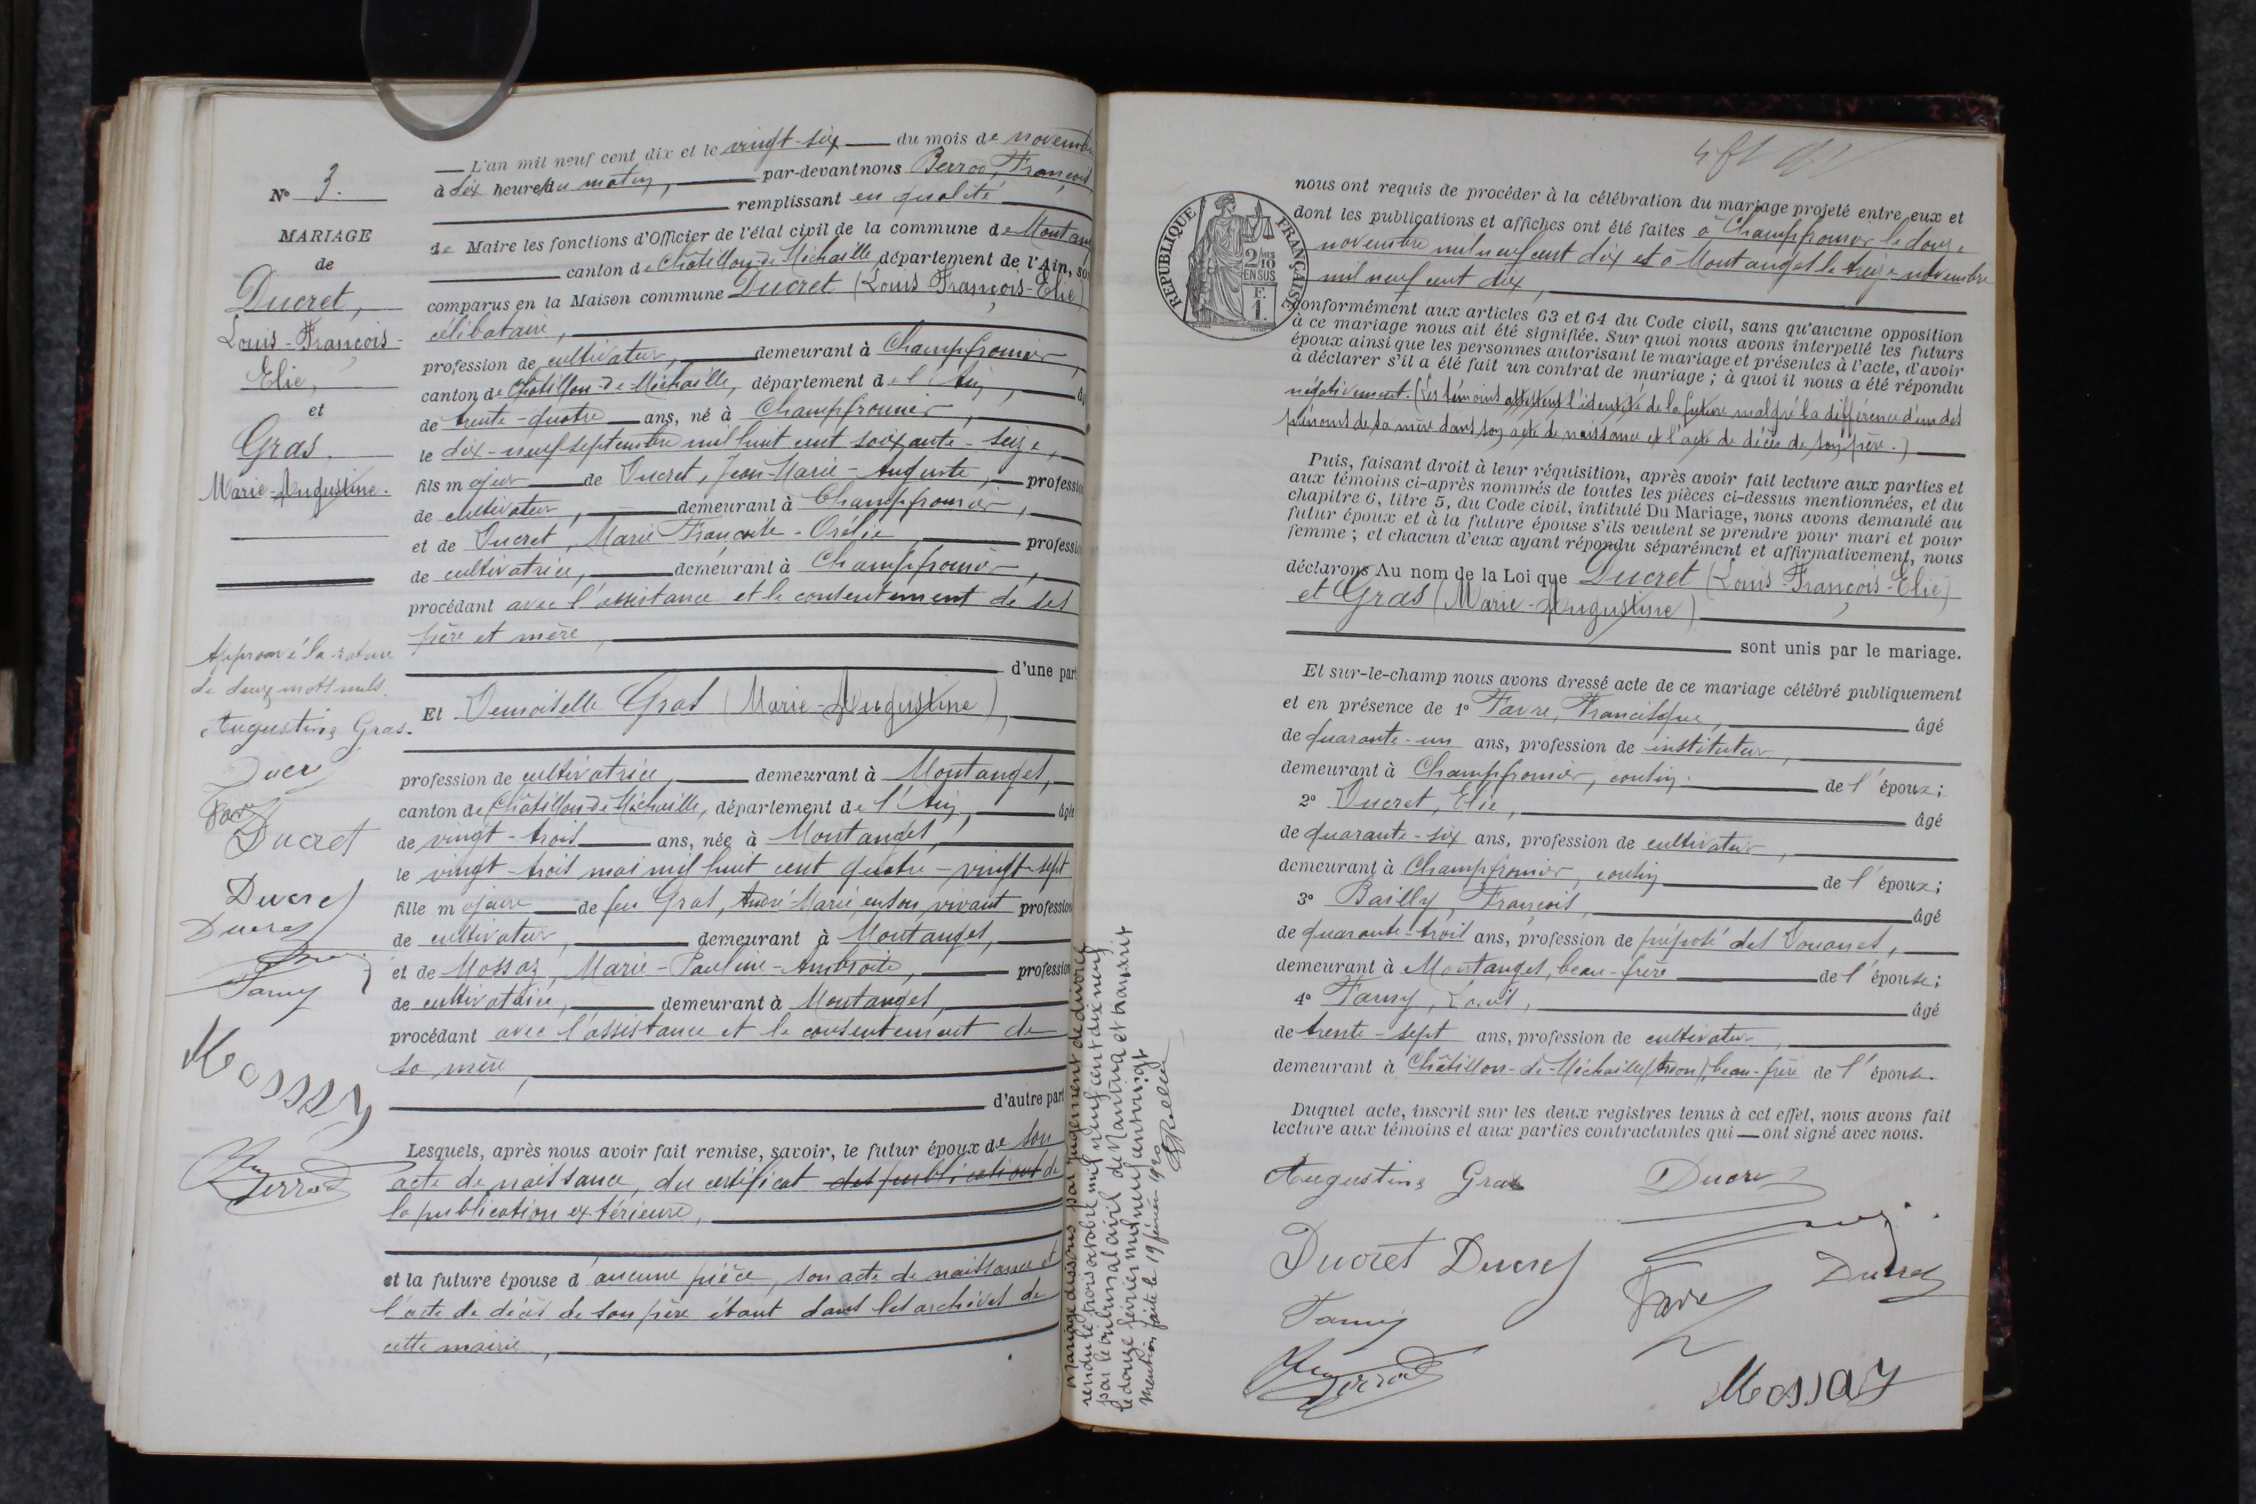 Nº 3.
MARIAGE
de
Ducret,
Louis-François-
Elie,
et
Gras.
Marie-Augustine.
Approuvé la rature
de deux mots nuls.
Augustine Gras.
Ducret
Ducret
Ducret
Famy
Mossaz
L'an mil neuf cent dix et le vingt-six du mois de novembre
à dix heures du matin, par-devant nous Berrod, François,
remplissant en qualité
de Maire les fonctions d'Officier de l'état civil de la commune de Montanges
canton de Châtillon-de-Michaille, département de l'Ain, sont
comparus en la Maison commune Ducret (Louis François-Elie)
célibataire,
profession de cultivateur, demeurant à Champfromier,
canton de Châtillon-de-Michaille, département de l'Ain,
de trente-quatre ans, né à Champfromier,
le dix-neuf septembre mil huit cent soixante-seize,
fils majeur de Ducret, Jean-Marie-Auguste, profession
de cultivateur, demeurant à Champfromier,
et de Ducret, Marie Françoise-Orélie, profession
de cultivatrice, demeurant à Champfromier,
procédant avec l'assistance et le consentement de ses
père et mère,
d'une part
Et Demoiselle Gras (Marie-Augustine),
profession de cultivatrice, demeurant à Montanges,
canton de Châtillon-de-Michaille, département de l'Ain, âgée
de vingt-trois ans, née à Montanges,
le vingt-trois mai mil huit cent quatre-vingt-sept
fille majeure de feu Gras, André-Marie, en son vivant profession
de cultivateur, demeurant à Montanges,
et de Mossaz, Marie-Pauline-Ambroise, profession
de cultivatrice, demeurant à Montanges,
procédant avec l'assistance et le consentement de
sa mère,
d'autre part
Lesquels, après nous avoir fait remise, savoir, le futur époux de son
acte de naissance, du certificat des publications de
la publication extérieure,
et la future épouse d'aucune pièce, son acte de naissance et
l'acte de décès de son père étant dans les archives de
cette mairie,
Mariage dissous par jugement de divorce
rendu le trois octobre mil neuf cent dix neuf
par le tribunal civil de Nantua et transcrit
le douze février mil neuf cent vingt
Mention faite le 19 février 1920
RÉPUBLIQUE FRANÇAISE
2/10
EN SUS
F.
1.
nous ont requis de procéder à la célébration du mariage projeté entre eux et
dont les publications et affiches ont été faites à Champfromier le douze
novembre mil neuf cent dix et à Montanges le treize novembre
mil neuf cent dix,
conformément aux articles 63 et 64 du Code civil, sans qu'aucune opposition
à ce mariage nous ait été signifiée. Sur quoi nous avons interpellé les futurs
époux ainsi que les personnes autorisant le mariage et présentes à l'acte, d'avoir
à déclarer s'il a été fait un contrat de mariage ; à quoi il nous a été répondu
négativement. (Les témoins attestent l'identité de la future malgré la différence d'un des
prénoms de sa mère dans son acte de naissance et l'acte de décès de son père.)
Puis, faisant droit à leur réquisition, après avoir fait lecture aux parties et
aux témoins ci-après nommés de toutes les pièces ci-dessus mentionnées, et du
chapitre 6, titre 5, du Code civil, intitulé Du Mariage, nous avons demandé au
futur époux et à la future épouse s'ils veulent se prendre pour mari et pour
femme ; et chacun d'eux ayant répondu séparément et affirmativement, nous
déclarons Au nom de la Loi que Ducret (Louis-François-Elie)
et Gras (Marie-Augustine)
sont unis par le mariage.
Et sur-le-champ nous avons dressé acte de ce mariage célébré publiquement
et en présence de 1º Favre, Francisque, âgé
de quarante-un ans, profession de instituteur,
demeurant à Champfromier, cousin de l'époux ;
2º Ducret, Elie, âgé
de quarante-six ans, profession de cultivateur,
demeurant à Champfromier, cousin de l'époux ;
3º Bailly, François, âgé
de quarante-trois ans, profession de préposé des Douanes,
demeurant à Montanges, beau-frère de l'épouse ;
4º Famy, Louis, âgé
de trente-sept ans, profession de cultivateur,
demeurant à Châtillon-de-Michaille, beau-frère de l'épouse.
Duquel acte, inscrit sur les deux registres tenus à cet effet, nous avons fait
lecture aux témoins et aux parties contractantes qui ont signé avec nous.
Augustine Gras Ducret
Ducret Ducret Favre Ducret
Famy
Berrod
Mossaz